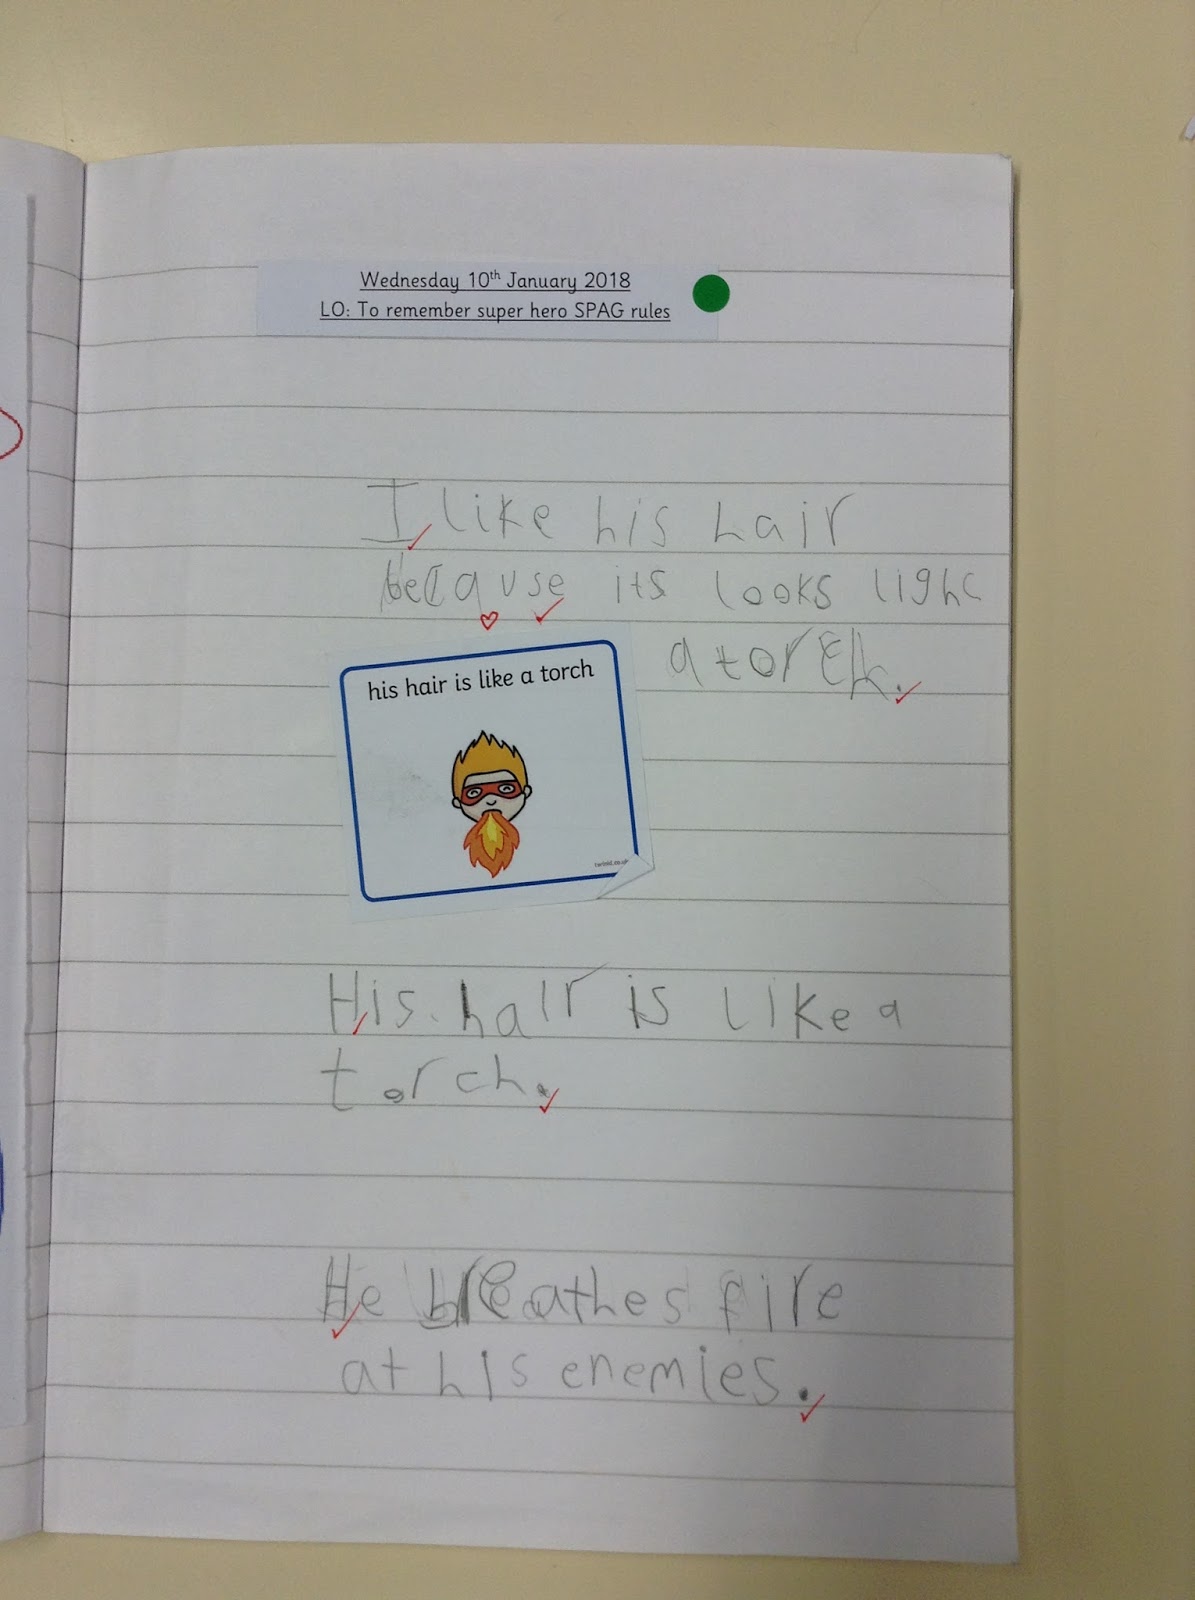 Wednesday 10th January 2018
LO: To remember super hero SPAG rules
I like his hair
because its looks light
a torch.
his hair is like a torch
twinkl.co.uk
His hair is like a
torch.
He breathes fire
at his enemies.